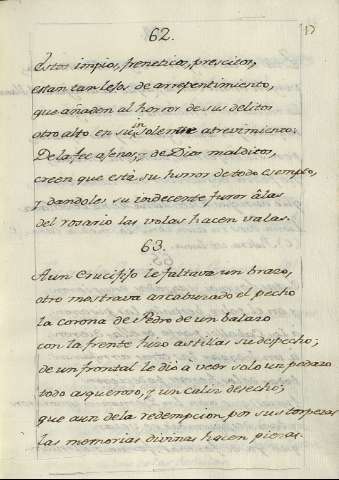 17
62.
Estos impios, freneticos, prescitos,
estan tan lejos de arrepentimiento,
que añaden al horror de sus delitos
otro alto en su insolente atrevimiento:
De la fee agenos, y de Dios malditos,
creen que está su horror de todo esempto,
y dandoles su indecente furor âlas
del rosario las volas hacen valas.
63.
A un Crucifijo le faltava un brazo,
otro mostrava arcabuzeado el pecho
la corona de Pedro de un balazo
con la frente hizo astillas su despecho;
de un frontal le dio à veer solo un pedazo
todo asqueroso, y un caliz desecho;
que aun de la redempcion por sus torpezas
las memorias divinas hacen piezas.